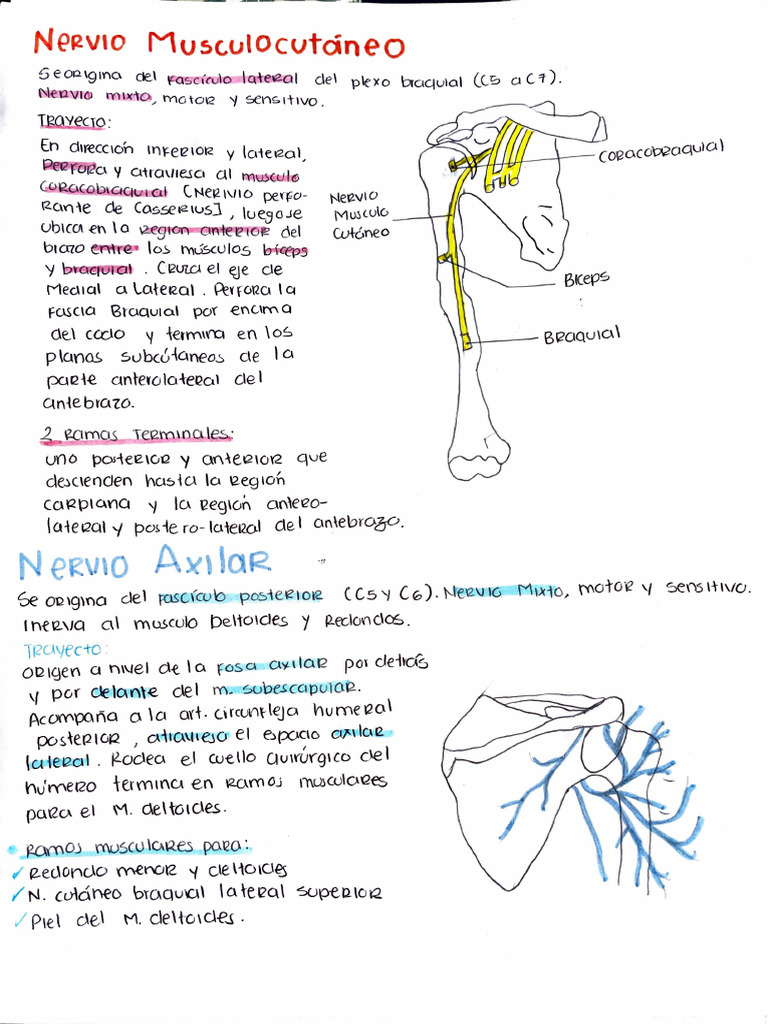 Nervio Musculocutáneo
Se origina del fascículo lateral del plexo braquial (C5 a C7).
Nervio mixto, motor y sensitivo.
Trayecto:
En dirección inferior y lateral,
Perfora y atraviesa al musculo
coracobraquial [Nervio perfo-
rante de Casserius], luego se
ubica en la region anterior del
brazo entre los músculos bíceps
y braquial. Cruza el eje de
Medial a Lateral. Perfora la
fascia Braquial por encima
del codo y termina en los
planos subcútaneos de la
parte anterolateral del
antebrazo.
Coracobraquial
Nervio
Musculo
Cutáneo
Biceps
Braquial
2 Ramas Terminales:
uno posterior y anterior que
descienden hasta la región
carpiana y la región antero-
lateral y postero-lateral del antebrazo.
Nervio Axilar
Se origina del fascículo posterior (C5 y C6). Nervio Mixto, motor y sensitivo.
Inerva al musculo Deltoides y Redondos.
Trayecto:
origen a nivel de la fosa axilar por detrás
y por delante del m. subescapular.
Acompaña a la art. circunfleja humeral
posterior, atraviesa el espacio axilar
lateral. Rodea el cuello quirúrgico del
húmero termina en Ramos musculares
para el M. deltoides.
• Ramos musculares para:
✓ Redondo menor y deltoides
✓ N. cutáneo braquial lateral superior
✓ Piel del M. deltoides.